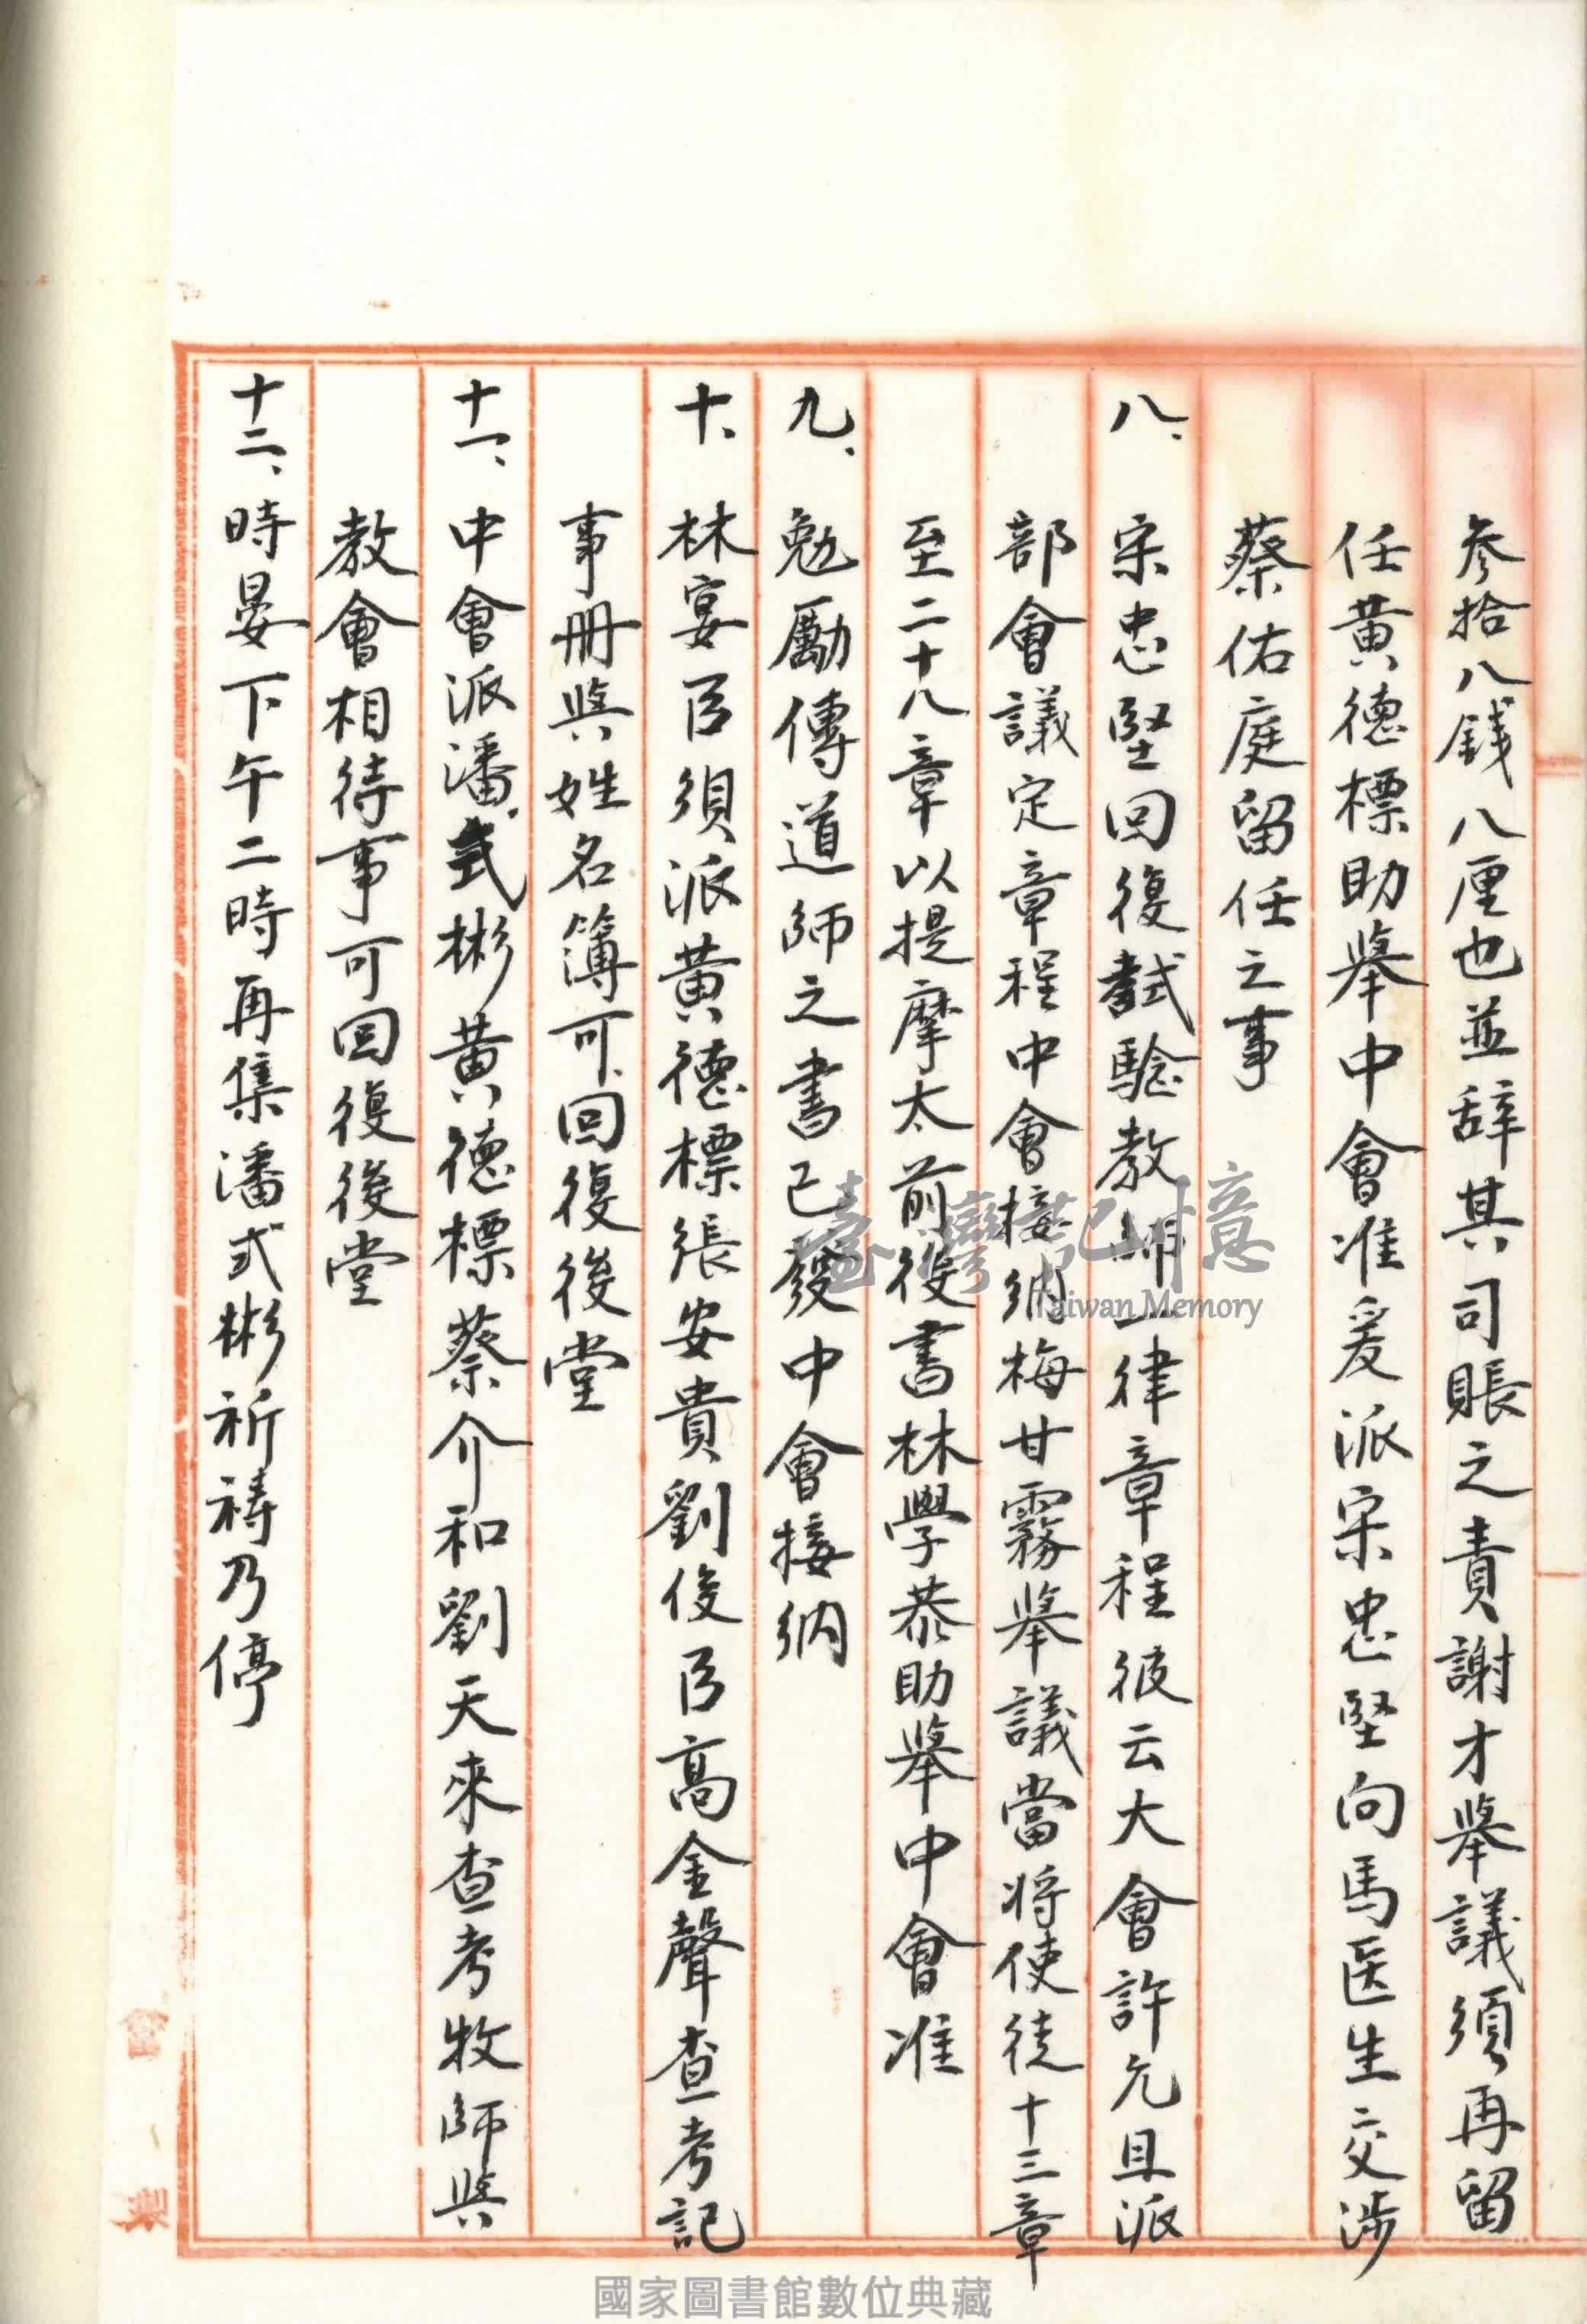 参拾八銭八厘也並辞其司賬之責謝才舉議須再留
任黄德標助舉中會准爰派宋忠堅向馬医生交涉
蔡佑庭留任之事
八、宋忠堅回復試驗教師一律章程彼云大會許允且派
部會議定章程中會接納梅甘霧舉議當将使徒十三章
至二十八章以提摩太前後書林學恭助舉中會准
九、勉勵傳道師之書已發中會接納
十、林宴臣須派黄德標張安貴劉俊臣高金聲查考記
事冊與姓名簿可回復後堂
十一、中會派潘式彬黄德標蔡介和劉天來查考牧師與
教會相待事可回復後堂
十二、時晏下午二時再集潘式彬祈禱乃停
臺灣記憶
Taiwan Memory
國家圖書館數位典藏